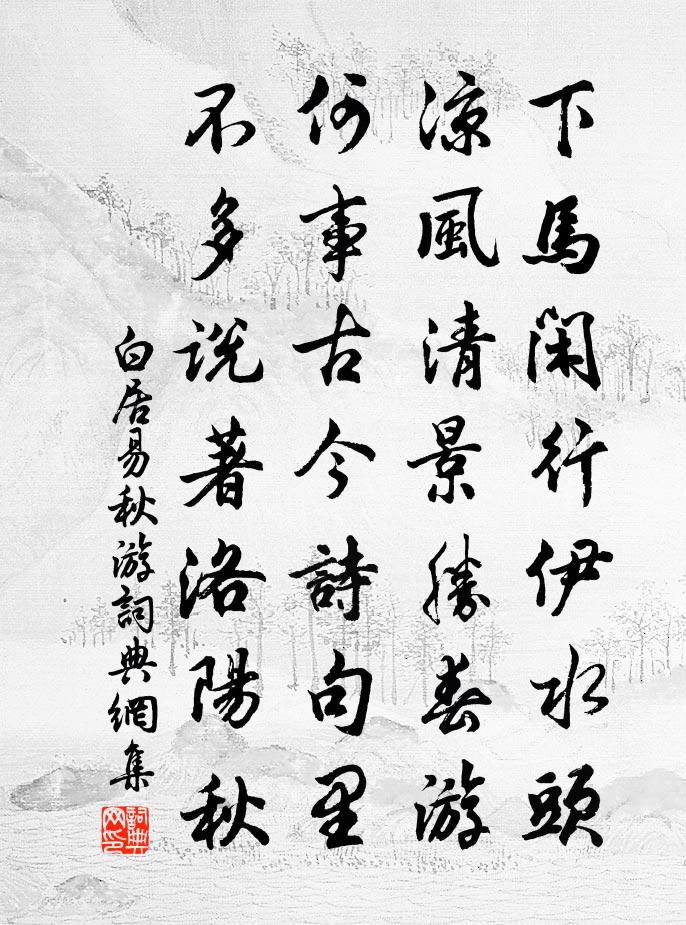 下馬閑行伊水頭
涼風清景勝春游
何事古今詩句里
不多説著洛陽秋
白居易秋游詞典網集
詞典网印